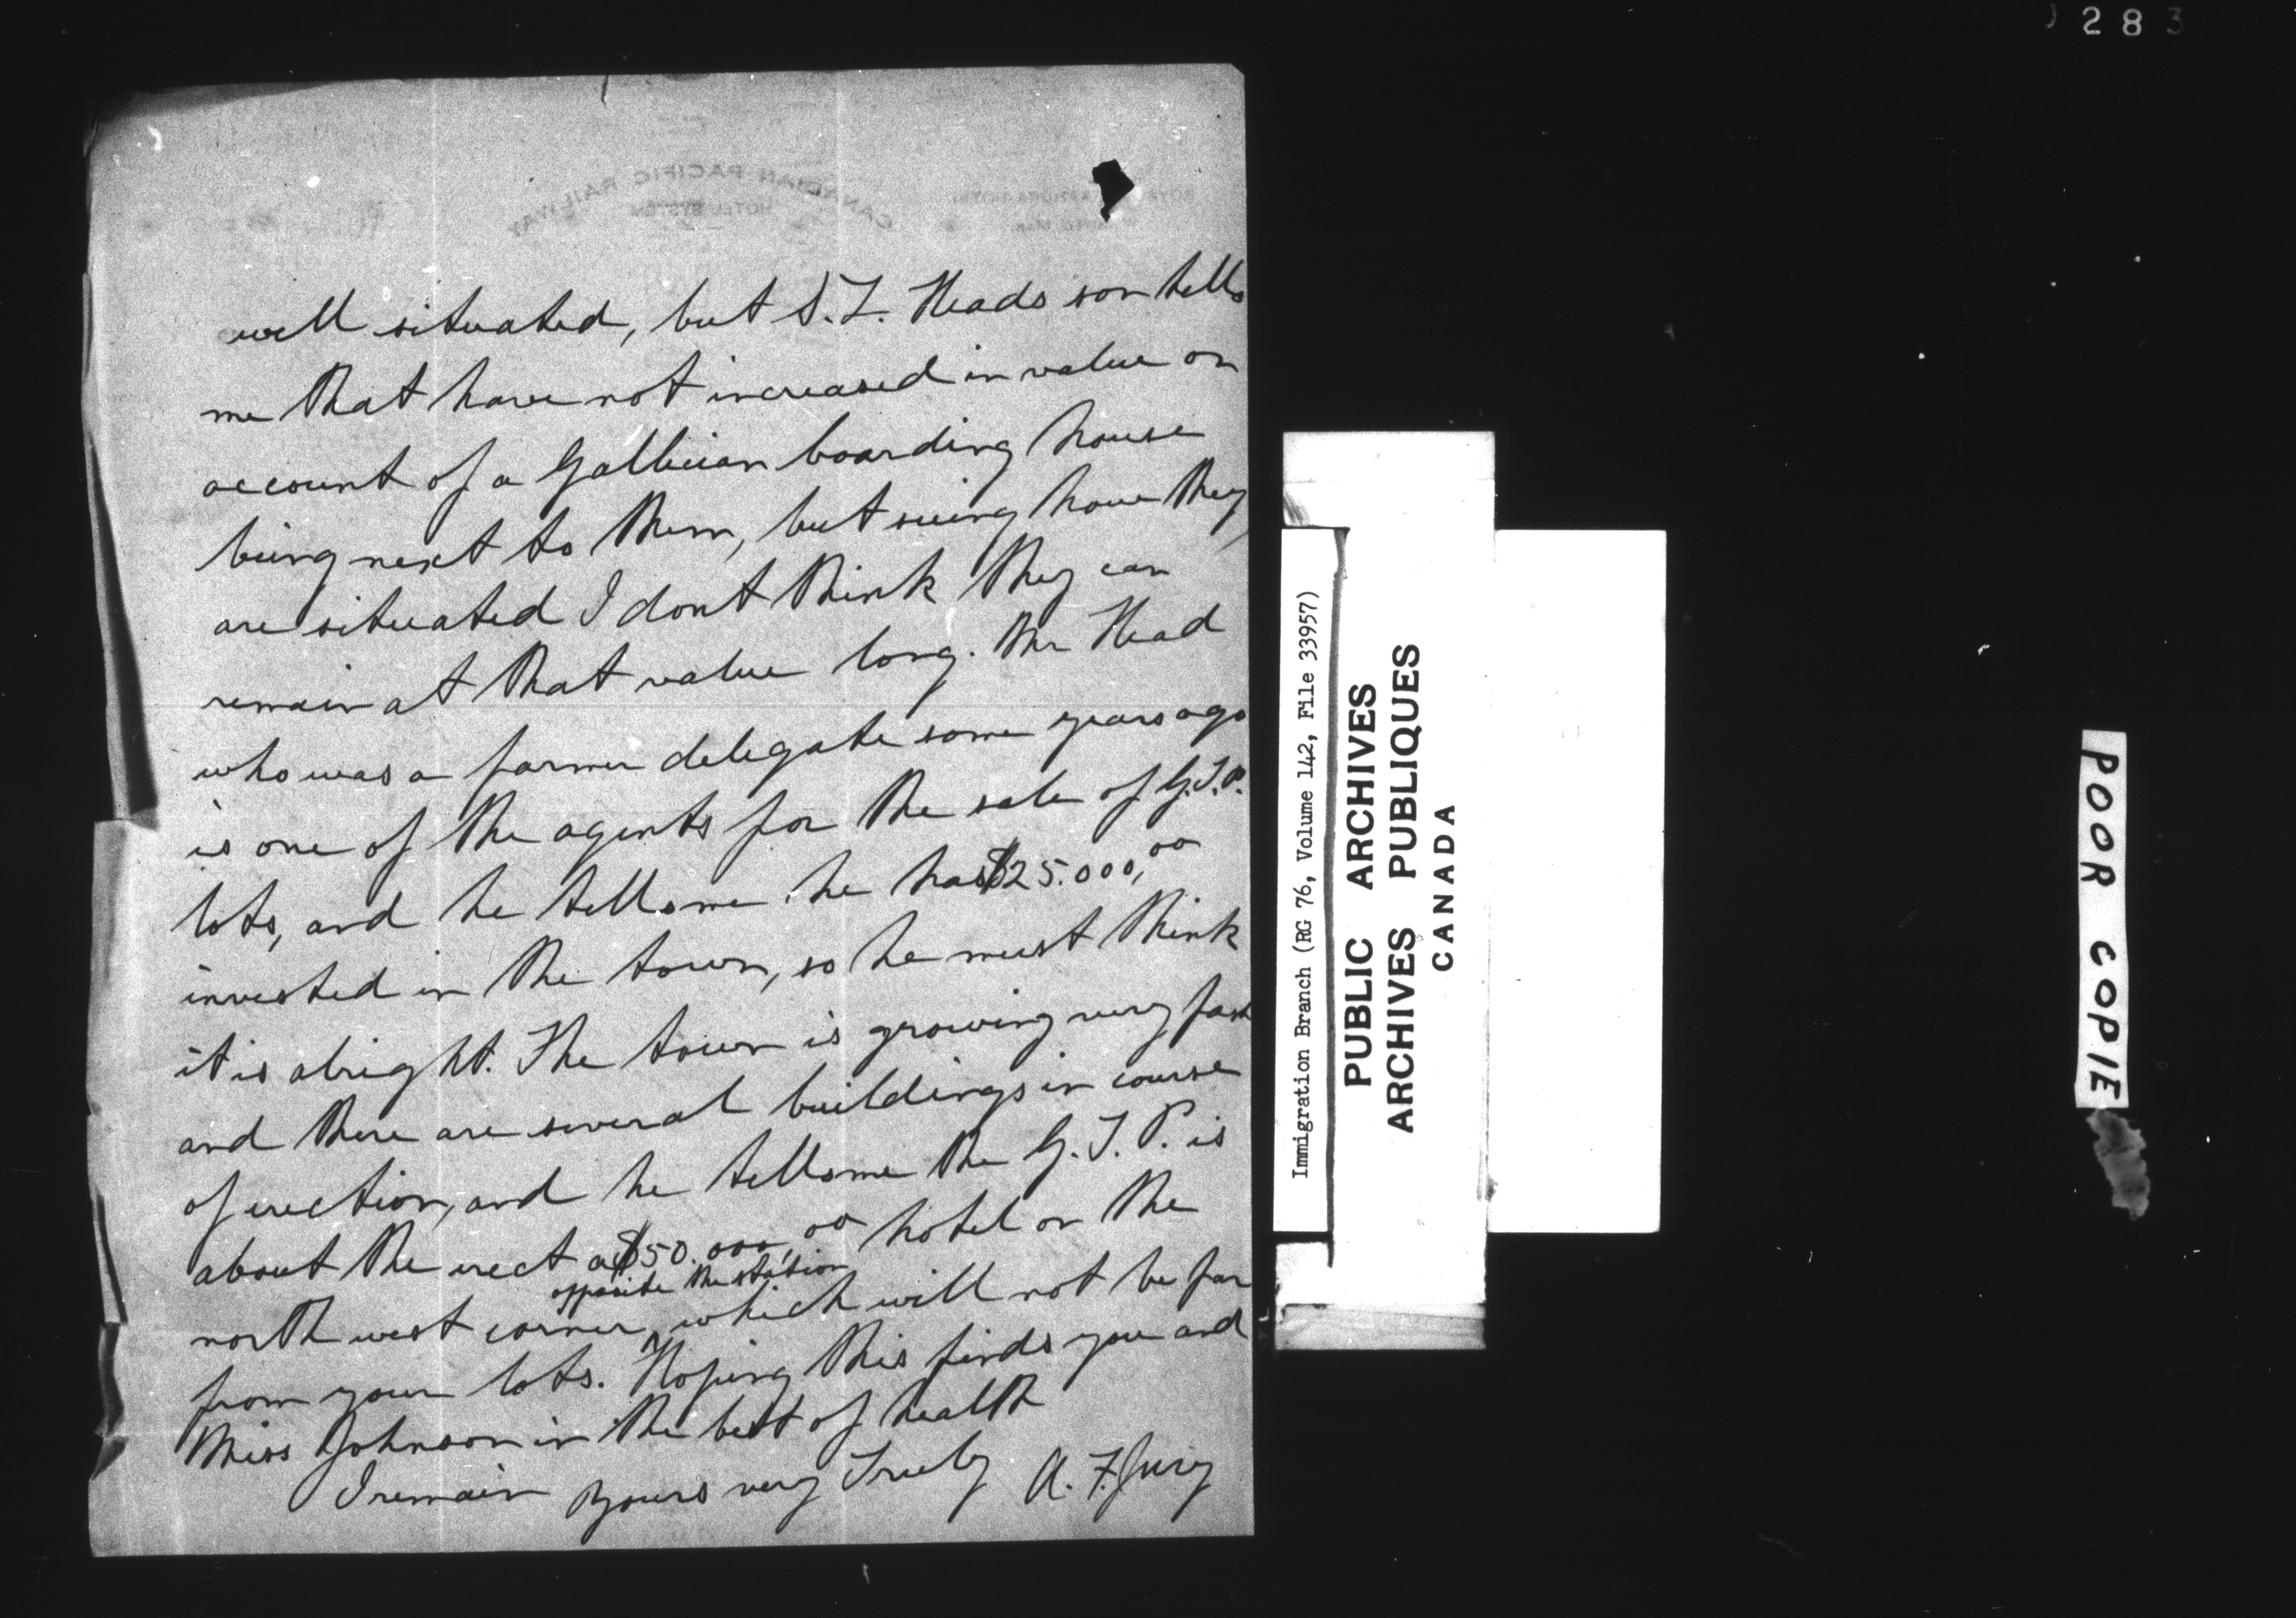 283
CANADIAN PACIFIC RAILWAY
HOTEL SYSTEM
well situated, but S. L. Heads son tells
me that have not increased in value on
account of a Gallician boarding house
being next to them, but seeing how they
are situated I dont think they can
remain at that value long. Mr Head
who was a farmer delegate some years ago
is one of the agents for the sale of G.T.P.
lots, and he tells me he has $25.000,00
invested in the town, so he must think
it is alright. The town is growing very fast
and there are several buildings in course
of erection, and he tells me the G. T. P. is
about the erect a $50.000,00 hotel on the
opposite the station
north west corner, which will not be far
from your lots. Hoping this finds you and
Miss Johnson in the best of health
I remain yours very Truly A. F. Jury
Immigration Branch (RG 76, Volume 142, File 33957)
PUBLIC ARCHIVES
ARCHIVES PUBLIQUES
CANADA
POOR COPIE